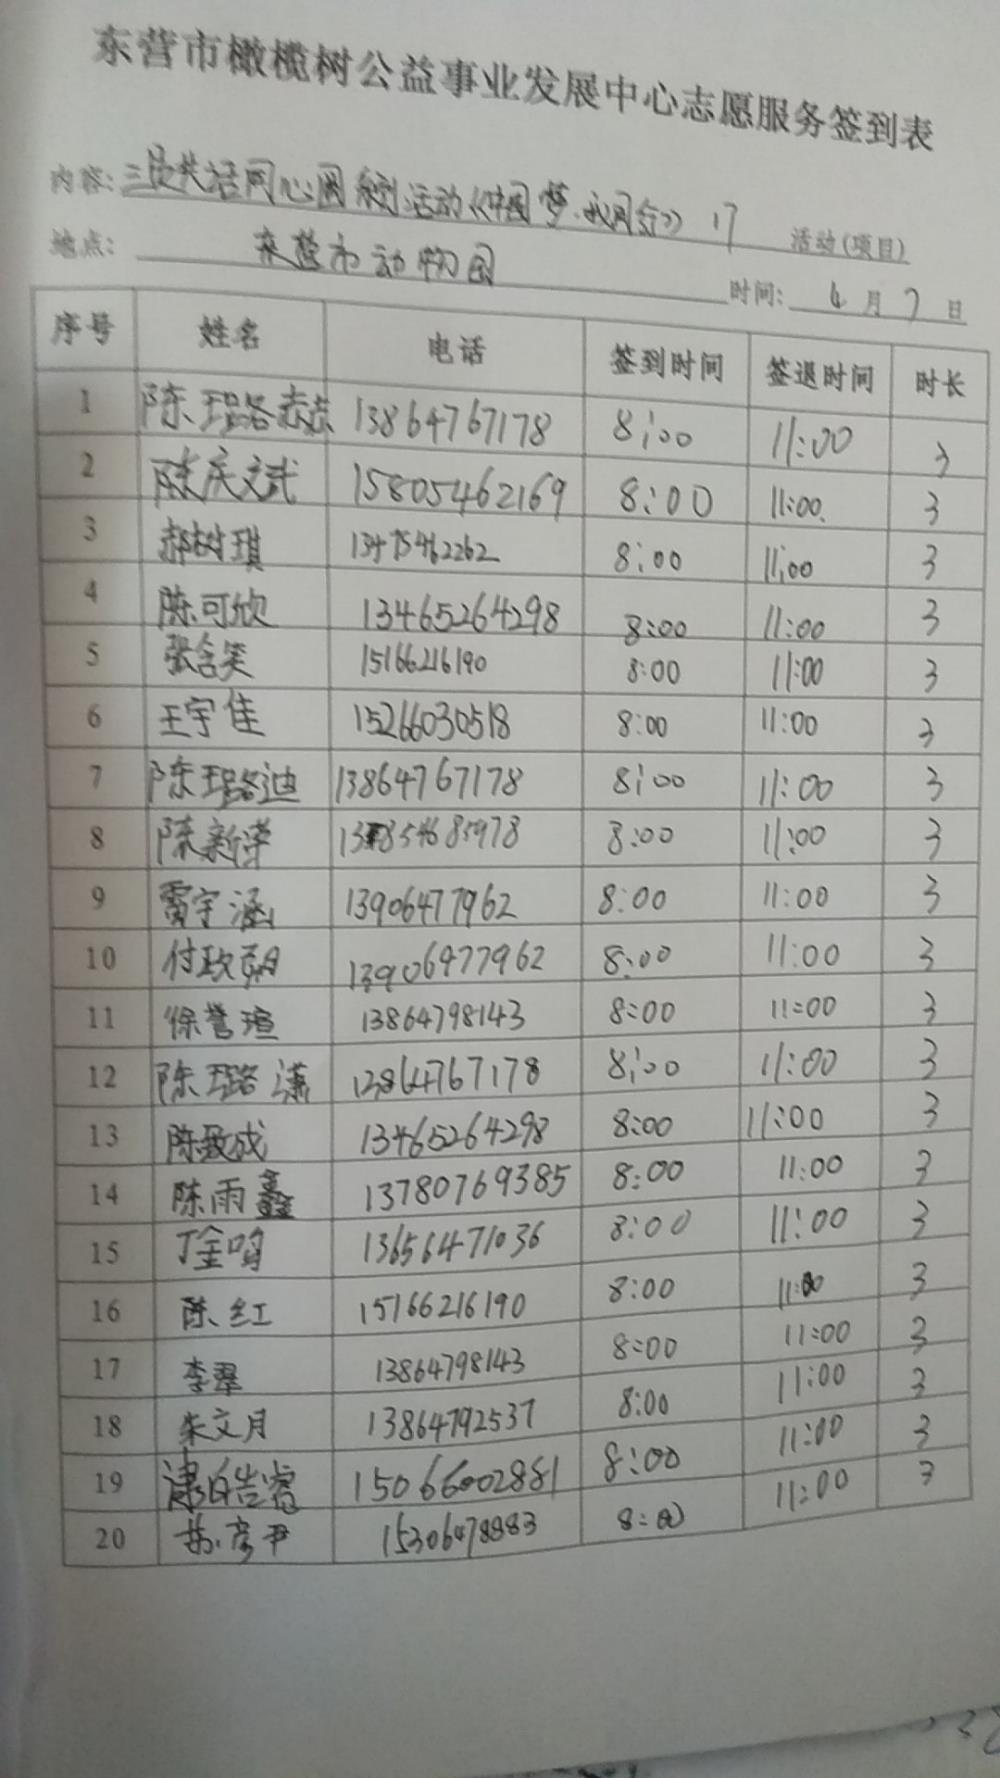 东营市橄榄树公益事业发展中心志愿服务签到表
内容: 活动《中国梦. 17 活动(项目)
地点: 东营市动物园
时间: 4月7日
序号 姓名 电话 签到时间 签退时间 时长
1 陈 13864767178 8:00 11:00 3
2 陈庆文武 15805462169 8:00 11:00 3
3 郝树琪 13475462262 8:00 11:00 3
4 陈可欣 13465264298 8:00 11:00 3
5 张含笑 15166216190 8:00 11:00 3
6 王宇佳 15266030518 8:00 11:00 3
7 陈 迪 13864767178 8:00 11:00 3
8 陈新 8:00 11:00 3
9 雷宇涵 13906477962 8:00 11:00 3
10 付政 13906477962 8:00 11:00 3
11 徐誉瑄 13864798143 8:00 11:00 3
12 陈 潇 13864767178 8:00 11:00 3
13 陈致成 13465264298 8:00 11:00 3
14 陈雨鑫 13780769385 8:00 11:00 3
15 丁金鸣 13656471036 8:00 11:00 3
16 陈红 15166216190 8:00 11:00 3
17 李翠 13864798143 8:00 11:00 3
18 朱文月 13864792537 8:00 11:00 3
19 15066002881 8:00 11:00 3
20 彦尹 15306478883 8:00 11:00 3